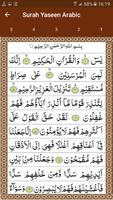 88% 16:19
Surah Yaseen Arabic
5 4 3 2 1
بِسْمِ اللهِ الرَّحْمٰنِ الرَّحِيْمِ
يٰسٓ وَالْقُرْاٰنِ الْحَكِيْمِ اِنَّكَ
لَمِنَ الْمُرْسَلِيْنَ عَلٰى صِرَاطٍ
مُّسْتَقِيْمٍ تَنْزِيْلَ الْعَزِيْزِ الرَّحِيْمِ
لِتُنْذِرَ قَوْمًا مَّآ اُنْذِرَ اٰبَآؤُهُمْ فَهُمْ
غٰفِلُوْنَ لَقَدْ حَقَّ الْقَوْلُ عَلٰٓى اَكْثَرِهِمْ
فَهُمْ لَا يُؤْمِنُوْنَ اِنَّا جَعَلْنَا فِيْٓ
اَعْنَاقِهِمْ اَغْلٰلًا فَهِيَ اِلَى الْاَذْقَانِ فَهُمْ
مُّقْمَحُوْنَ وَجَعَلْنَا مِنْۢ بَيْنِ اَيْدِيْهِمْ
سَدًّا وَّمِنْ خَلْفِهِمْ سَدًّا فَاَغْشَيْنٰهُمْ فَهُمْ